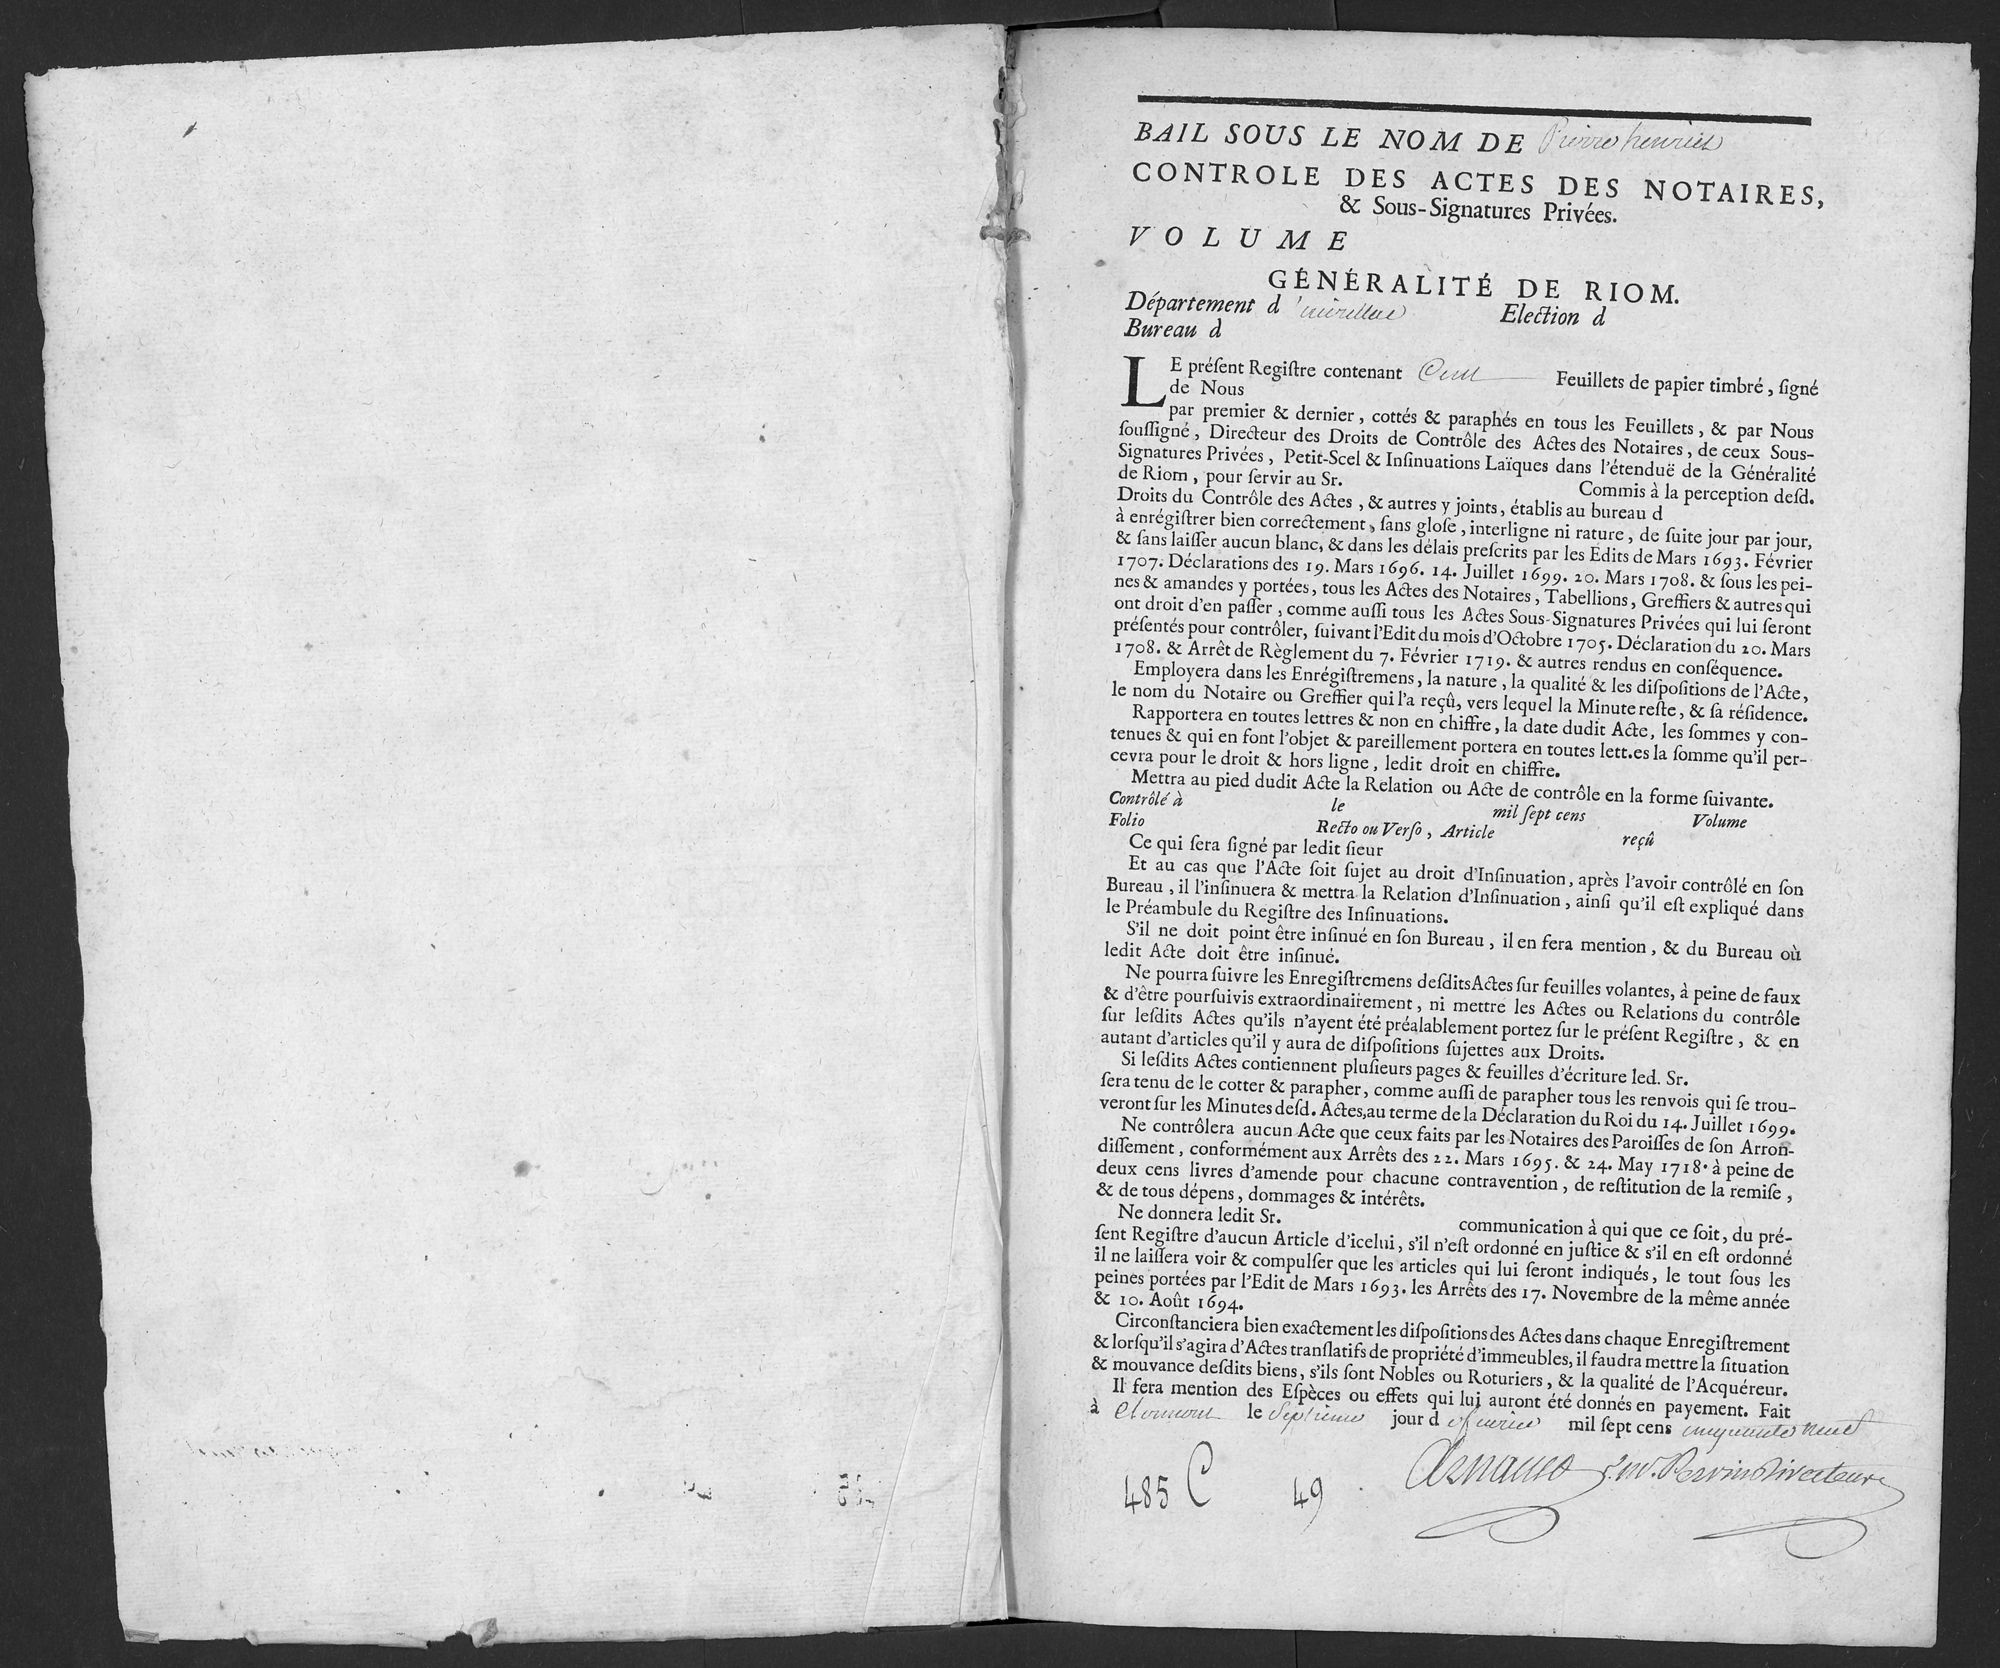 BAIL SOUS LE NOM DE Pierre henriet
CONTROLE DES ACTES DES NOTAIRES,
& Sous-Signatures Privées.
VOLUME
GÉNÉRALITÉ DE RIOM.
Département d Election d
Bureau d
LE préſent Regiſtre contenant Cent Feuillets de papier timbré, ſigné
de Nous
par premier & dernier, cottés & paraphés en tous les Feuillets, & par Nous
ſouſſigné, Directeur des Droits de Contrôle des Actes des Notaires, de ceux Sous-
Signatures Privées, Petit-Scel & Inſinuations Laïques dans l'étenduë de la Généralité
de Riom, pour ſervir au Sr. Commis à la perception deſd.
Droits du Contrôle des Actes, & autres y joints, établis au bureau d
à enrégiſtrer bien correctement, ſans gloſe, interligne ni rature, de ſuite jour par jour,
& ſans laiſſer aucun blanc, & dans les délais preſcrits par les Edits de Mars 1693. Février
1707. Déclarations des 19. Mars 1696. 14. Juillet 1699. 20. Mars 1708. & ſous les pei-
nes & amandes y portées, tous les Actes des Notaires, Tabellions, Greffiers & autres qui
ont droit d'en paſſer, comme auſſi tous les Actes Sous-Signatures Privées qui lui ſeront
préſentés pour contrôler, ſuivant l'Edit du mois d'Octobre 1705. Déclaration du 20. Mars
1708. & Arrêt de Règlement du 7. Février 1719. & autres rendus en conſéquence.
Employera dans les Enrégiſtremens, la nature, la qualité & les diſpoſitions de l'Acte,
le nom du Notaire ou Greffier qui l'a reçû, vers lequel la Minute reſte, & ſa réſidence.
Rapportera en toutes lettres & non en chiffre, la date dudit Acte, les ſommes y con-
tenues & qui en font l'objet & pareillement portera en toutes lett.es la ſomme qu'il per-
cevra pour le droit & hors ligne, ledit droit en chiffre.
Mettra au pied dudit Acte la Relation ou Acte de contrôle en la forme ſuivante.
Contrôlé à le mil ſept cens Volume
Folio Recto ou Verſo, Article reçû
Ce qui ſera ſigné par ledit ſieur
Et au cas que l'Acte ſoit ſujet au droit d'Inſinuation, après l'avoir contrôlé en ſon
Bureau, il l'inſinuera & mettra la Relation d'Inſinuation, ainſi qu'il eſt expliqué dans
le Préambule du Regiſtre des Inſinuations.
S'il ne doit point être inſinué en ſon Bureau, il en fera mention, & du Bureau où
ledit Acte doit être inſinué.
Ne pourra ſuivre les Enregiſtremens deſdits Actes ſur feuilles volantes, à peine de faux
& d'être pourſuivis extraordinairement, ni mettre les Actes ou Relations du contrôle
ſur leſdits Actes qu'ils n'ayent été préalablement portez ſur le préſent Regiſtre, & en
autant d'articles qu'il y aura de diſpoſitions ſujettes aux Droits.
Si leſdits Actes contiennent pluſieurs pages & feuilles d'écriture led. Sr.
ſera tenu de le cotter & parapher, comme auſſi de parapher tous les renvois qui ſe trou-
veront ſur les Minutes deſd. Actes, au terme de la Déclaration du Roi du 14. Juillet 1699.
Ne contrôlera aucun Acte que ceux faits par les Notaires des Paroiſſes de ſon Arron-
diſſement, conformément aux Arrêts des 22. Mars 1695. & 24. May 1718. à peine de
deux cens livres d'amende pour chacune contravention, de reſtitution de la remiſe,
& de tous dépens, dommages & intérêts.
Ne donnera ledit Sr. communication à qui que ce ſoit, du pré-
ſent Regiſtre d'aucun Article d'icelui, s'il n'eſt ordonné en juſtice & s'il en eſt ordonné
il ne laiſſera voir & compulſer que les articles qui lui ſeront indiqués, le tout ſous les
peines portées par l'Edit de Mars 1693. les Arrêts des 17. Novembre de la même année
& 10. Août 1694.
Circonſtanciera bien exactement les diſpoſitions des Actes dans chaque Enregiſtrement
& lorſqu'il s'agira d'Actes tranſlatifs de propriété d'immeubles, il faudra mettre la ſituation
& mouvance deſdits biens, s'ils ſont Nobles ou Roturiers, & la qualité de l'Acquéreur.
Il fera mention des Eſpèces ou effets qui lui auront été donnés en payement. Fait
à Clermont le Septieme jour d fevrier mil ſept cens cinquante neuf
Arnaud Directeur
485 C 49